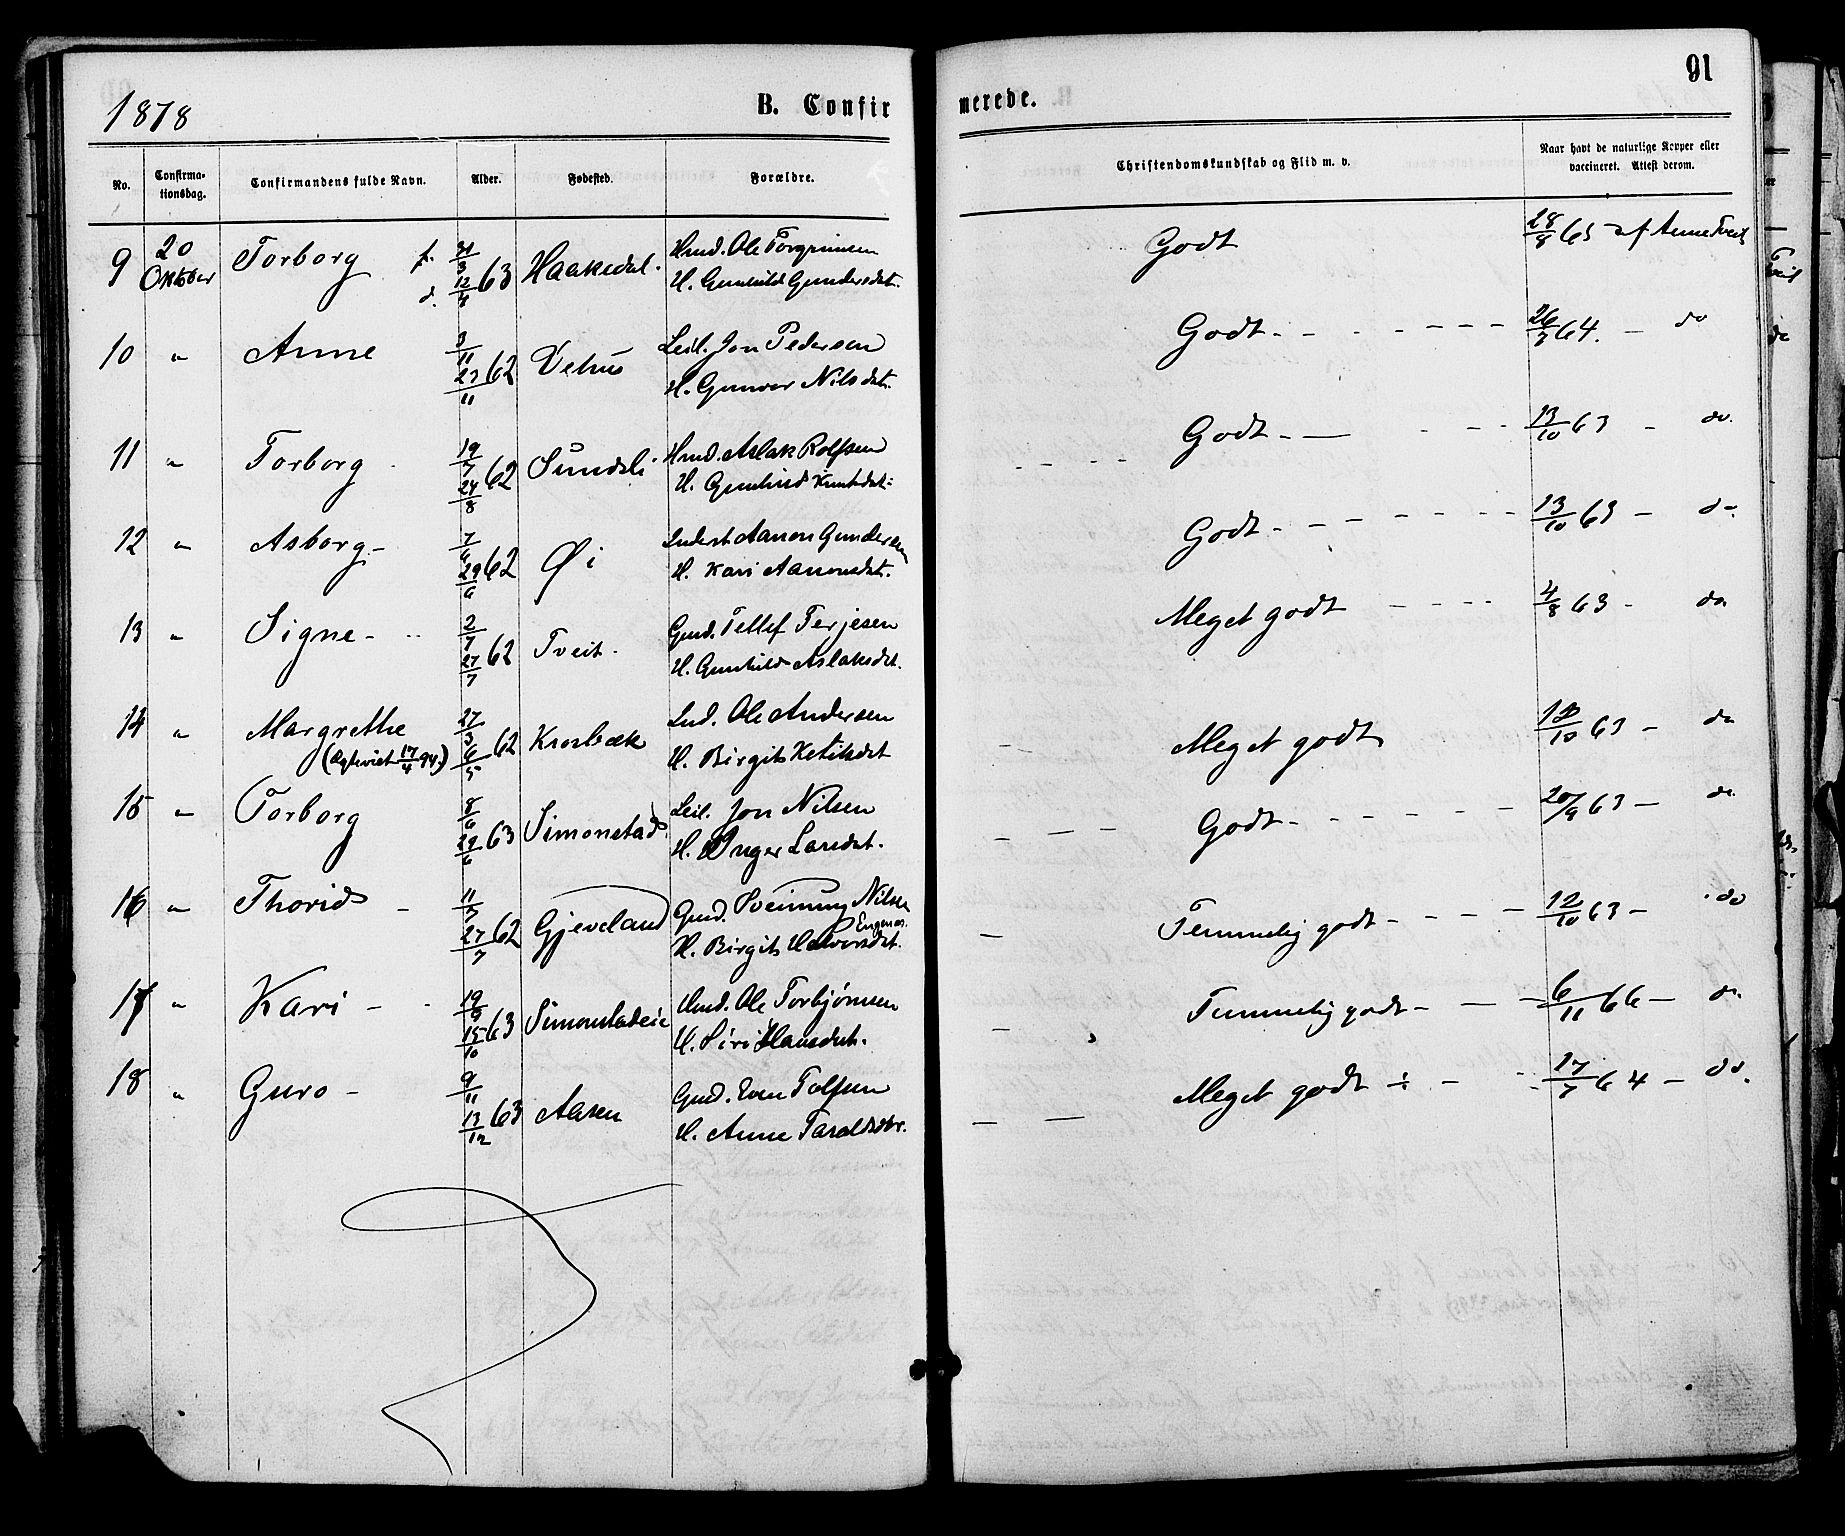 1878 B. Confirmerede. 91
No. Confirmationsdag. Confirmandens fulde Navn. Alder. Fødested. Forældre. Christendomskundskab og Flid m. v. Naar havt de naturlige Kopper eller vaccineret. Attest derom.
9 20 Oktober Torborg f. 31/3 d. 12/4 63 Haakedal. Hmd. Ole Torgrimsen Godt 28/9 65 af Anne Tveit
H. Gunhild Gundersdat.
10 " Anne 3/11 23/11 62 Vehus Leil. Jon Pedersen Godt - - - - - 26/7 64. - do
H. Gunvor Nilsdat.
11 " Torborg 19/7 24/8 62 Sundsli Hmd. Aslak Rolfsen Godt - - - - 13/10 63 - do.
H. Gunhild Knutsdat.
12 " Asborg - 7/6 29/6 62 Øi Inderst Aanon Gundersen Godt - - - - - 13/10 63 - do.
H. Kari Aanonsdat.
13 " Signe - 2/7 27/7 62 Tveit. Gmd. Tellef Terjesen Meget godt - - - - 4/8 63 - do.
H. Gunhild Aslaksdat.
14 " Margrethe 27/3 6/5 62 Krosbæk Ind. Ole Andersen Meget godt 13/10 63 - do
(Agteviet 17/4 94.) H. Birgit Ketilsdat
15 " Torborg 8/6 29/6 63 Simonstad Leil. Jon Nilsen Godt - - - - - 20/9 63 - do.
H. Inger Larsdat.
16 " Thorid - 11/7 27/7 62 Gjeveland Gmd. Sveinung Nilsen Temmelig godt - - - - 12/10 63 - do
Engenes.
H. Birgit Halvorsdat.
17 " Kari - 19/9 15/10 63 Simonstadeie Hmd. Ole Torbjørnsen Temmelig godt - - - 6/11 66 - do.
H. Siri Hansdat.
18 " Guro - 9/11 13/12 63 Aasen Gmd. Even Tolfsen Meget godt - - 17/7 64 - do.
H. Anne Taraldsdtr.